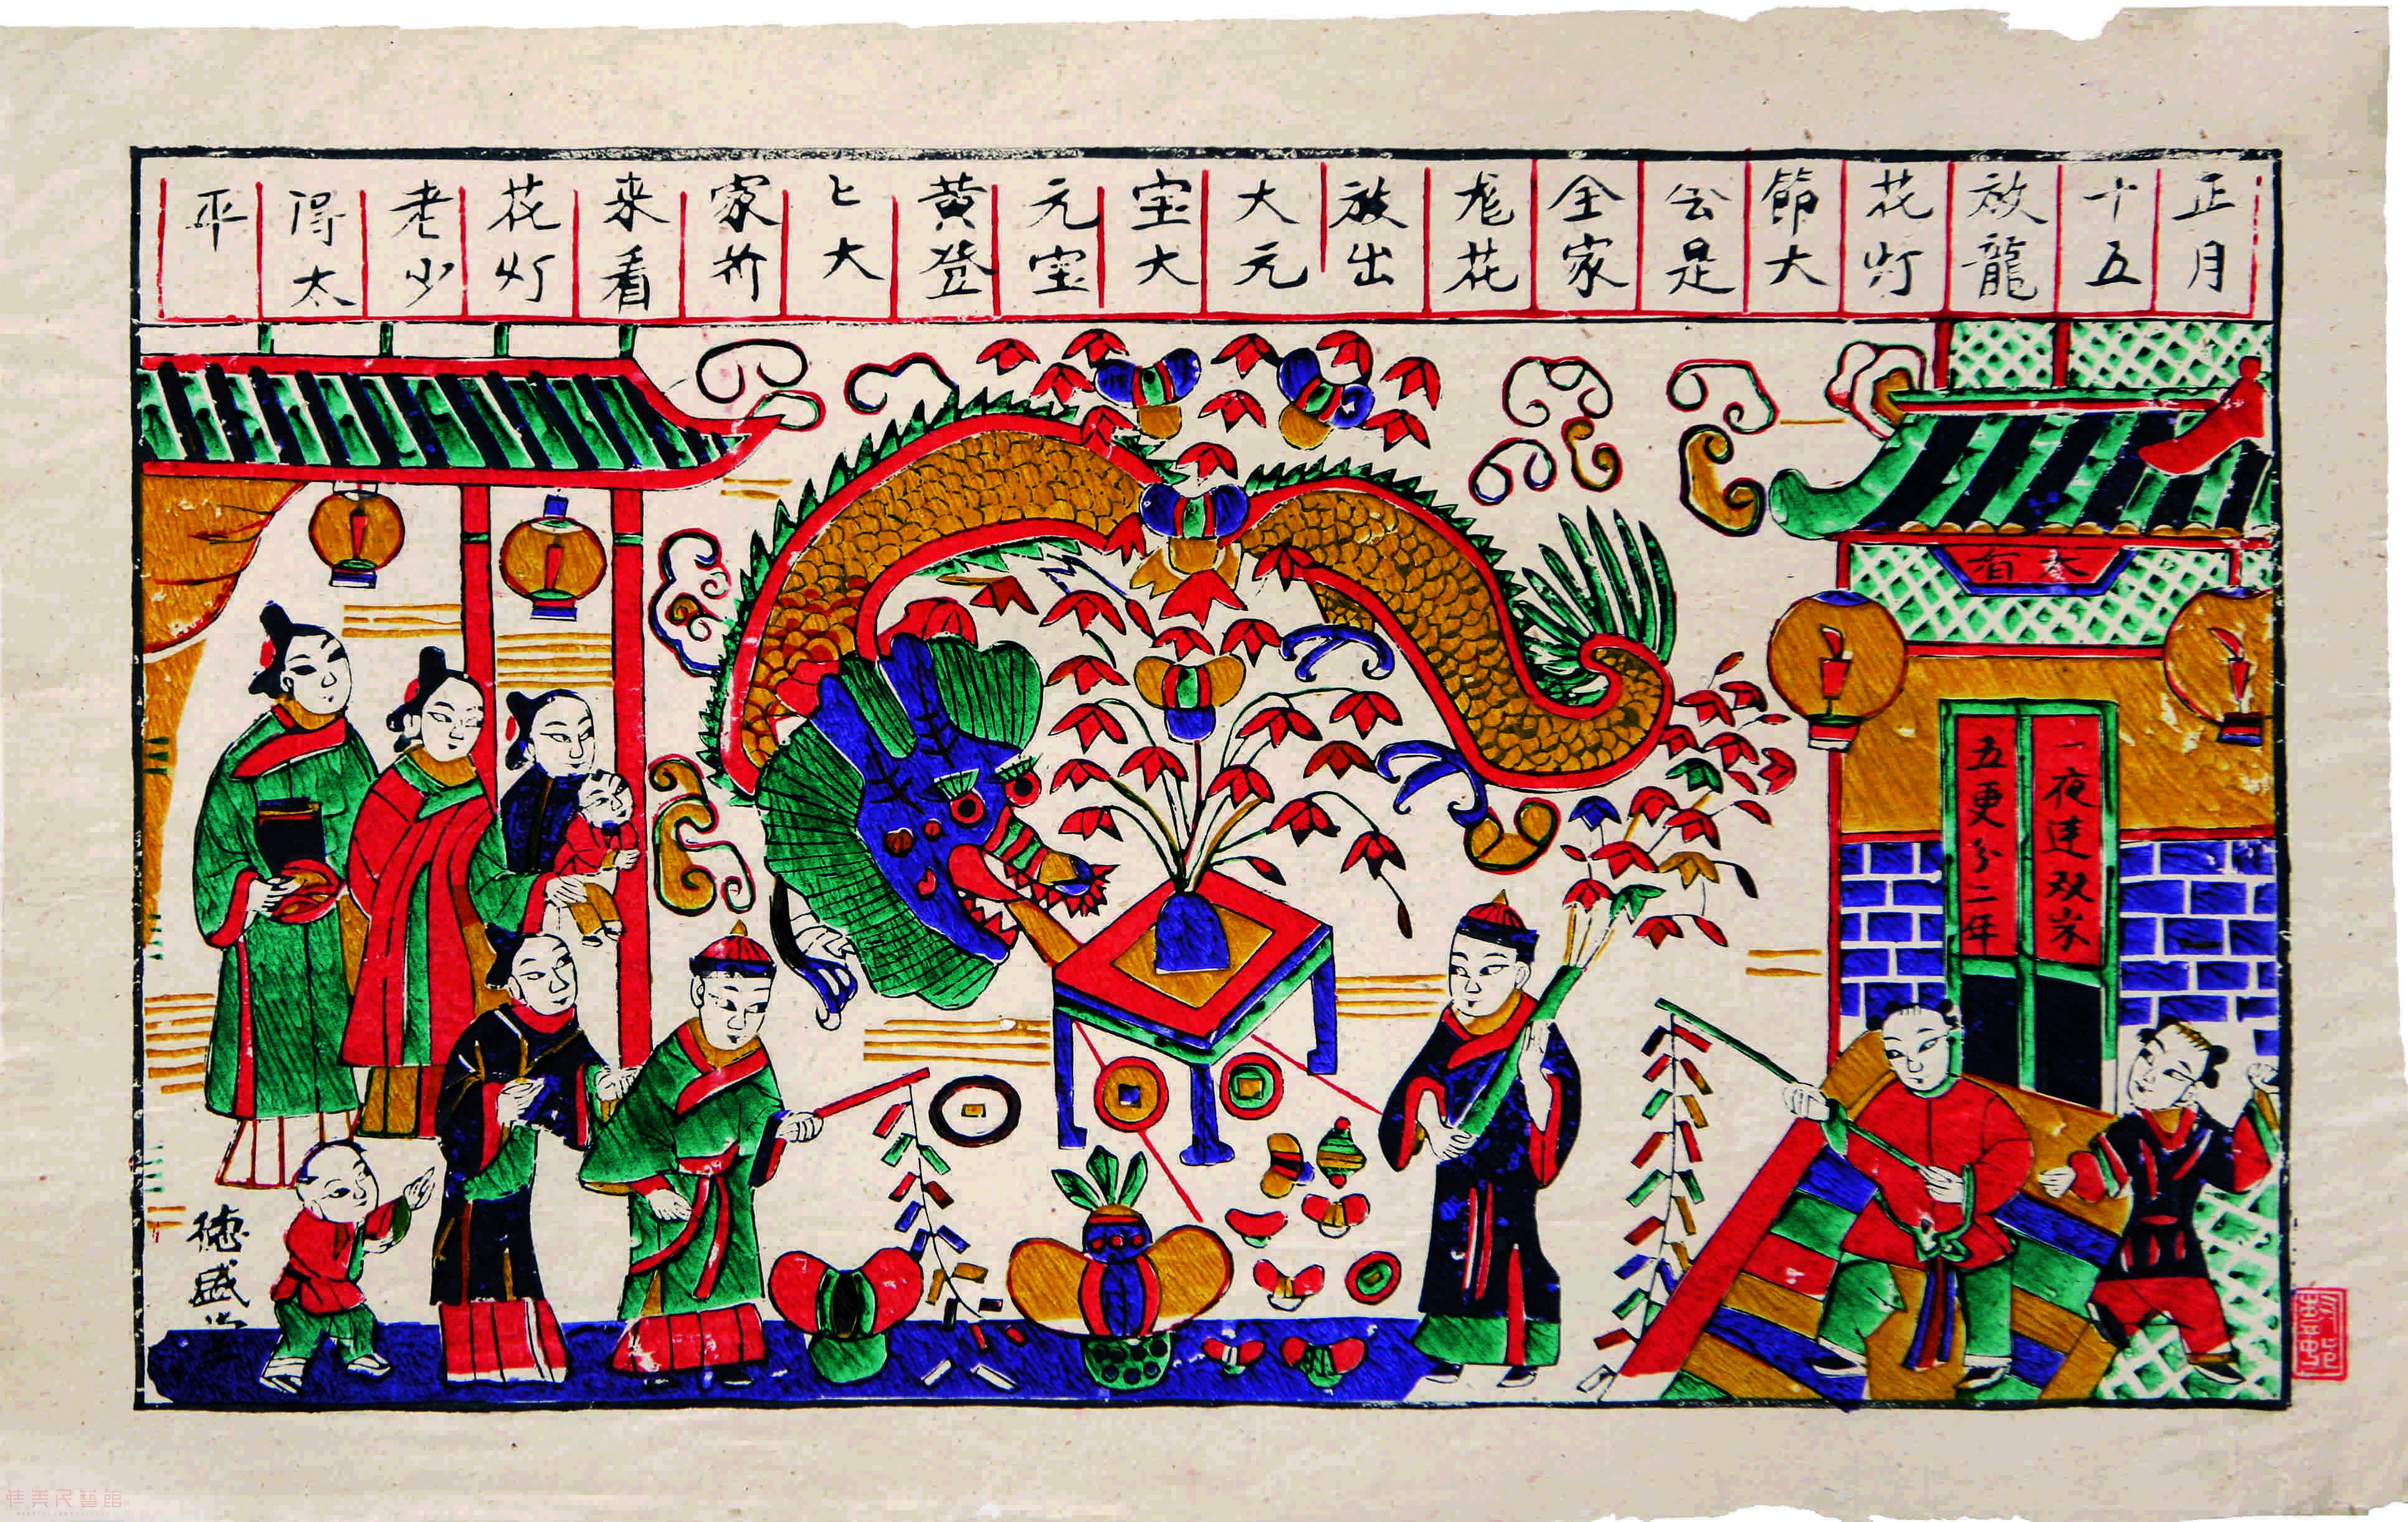 正月
十五
放龍
花灯
節大
会是
全家
龙花
放出
大元
宝大
元宝
黄登
上大
家斉
来看
花灯
老少
得太
平
有余
一夜連双岁
五更分二年
德盛
佳美民藝館